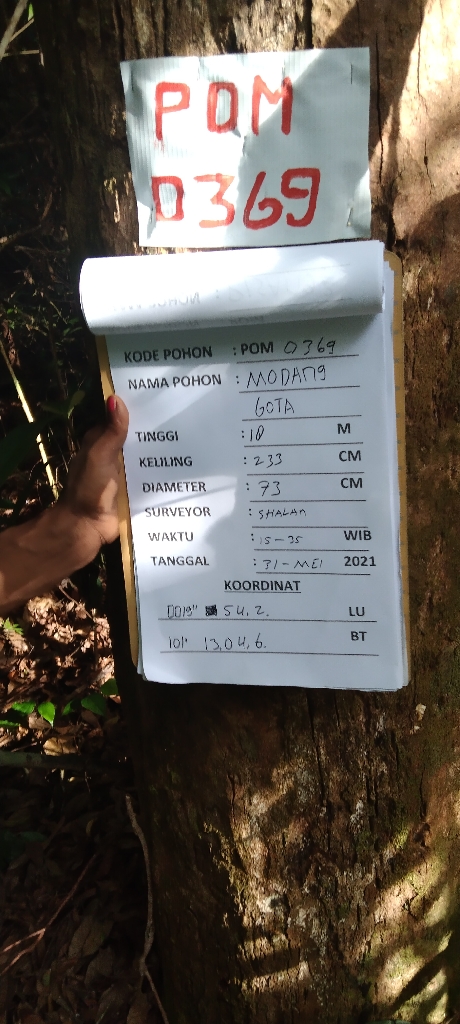 POM
0369
KODE POHON : POM 0369
NAMA POHON : MODANG
GOTA
TINGGI : 18 M
KELILING : 233 CM
DIAMETER : 73 CM
SURVEYOR : SHALAN
WAKTU : 15-35 WIB
TANGGAL : 31-MEI 2021
KOORDINAT
0019" 54.2. LU
101° 13,04,6. BT